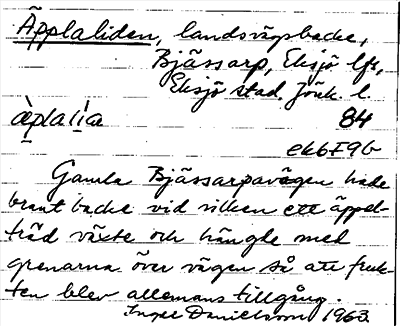 Äpplaliden, landsvägsbacke,
Bjässarp, Eksjö lfs,
Eksjö stad. Jönk. l.
àplalia 84
ek6F9b
Gamla Bjässarpavägen hade
brant backe vid vilken ett äppel-
träd växte och hängde med
grenarna över vägen så att fruk-
ten blev allemans tillgång.
Ingel Danielsson 1963